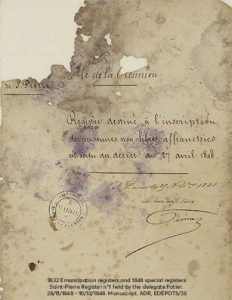 Ile de la Réunion
de St Pierre
Registre destiné à l'inscription
des personnes non libres affranchies
en vertu du décret du 27 avril 1848.
St Pierre
1832 Emancipation registers and 1848 special registers
Saint-Pierre Register n°1 held by the delegate Potier.
28/11/1848 - 10/12/1848. Manuscript. ADR, EDEPOT5/35